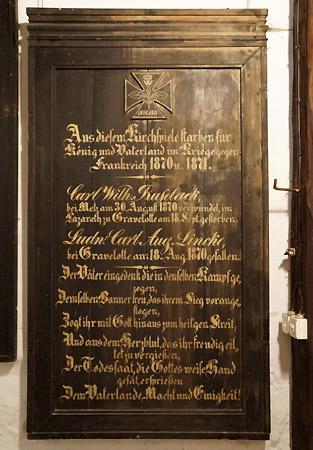 W
1870/71
Aus diesem Kirchspiele starben für
König und Vaterland im Kriege gegen
Frankreich 1870 u. 1871.
Carl Wilh.
bei Metz am 30. August 1870 verwundet, im
Lazareth zu Gravelotte am 18. Sept. gestorben.
Ludw. Carl Aug. Lincke,
bei Gravelotte am 18. Aug. 1870 gefallen.
Der Väter eingedenk die in denselben Kampf ge-
zogen,
Demselben Banner treu, das ihrem Sieg vorange-
flogen,
Zogt ihr mit Gott hinaus zum heilgen Streit,
Und aus dem Herzblut, das ihr freudig eil-
tet zu vergießen,
Der Todessaat, die Gottes weise Hand
gesät, ersprießen
Dem Vaterlande, Macht und Einigkeit!